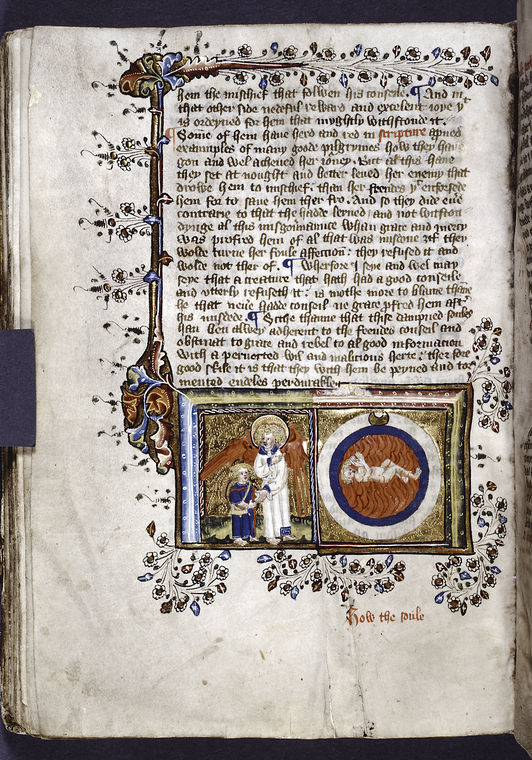 hem the mischef that folwen his conseile. ¶ And in
that other side nedeful reward and excelent ioye yt
is ordeyned for hem that myghtly withstond it.
Some of hem haue herd and red in scripture apued
examples of many goode pilgrymes how they haue
gon and wel acheued her iorney. But al this haue
they set at nought and better leued her enemy that
drowe hem to mischef. than her freendes yt enforsede
hem for to saue hem ther fro. And so they dide euer
contrarie to that the hadde lerned / and not withston
dynge al this misgouernaunce whan grace and mercy
was profred hem of al that was misdone ȝif they
wolde turne her foule affeccion: they refused it and
wolde not ther of. ¶ Wherfore I seye and wel may
seye that a creature that hath had a good conseile
and vtterly refuseth it: is mothe more to blame than
he that neuer hadde conseil ne grace profred hem aftir
his misdede. ¶ Sithe thanne that this dampned soules
han ben alwey adherent to the feendes conseil and
obstinat to grace and rebel to al good informacion
with a peruerted wil and malicious herte: ther fore
good skile it is that they with hem be peyned and tor
mented endeles perdurable
How the soule